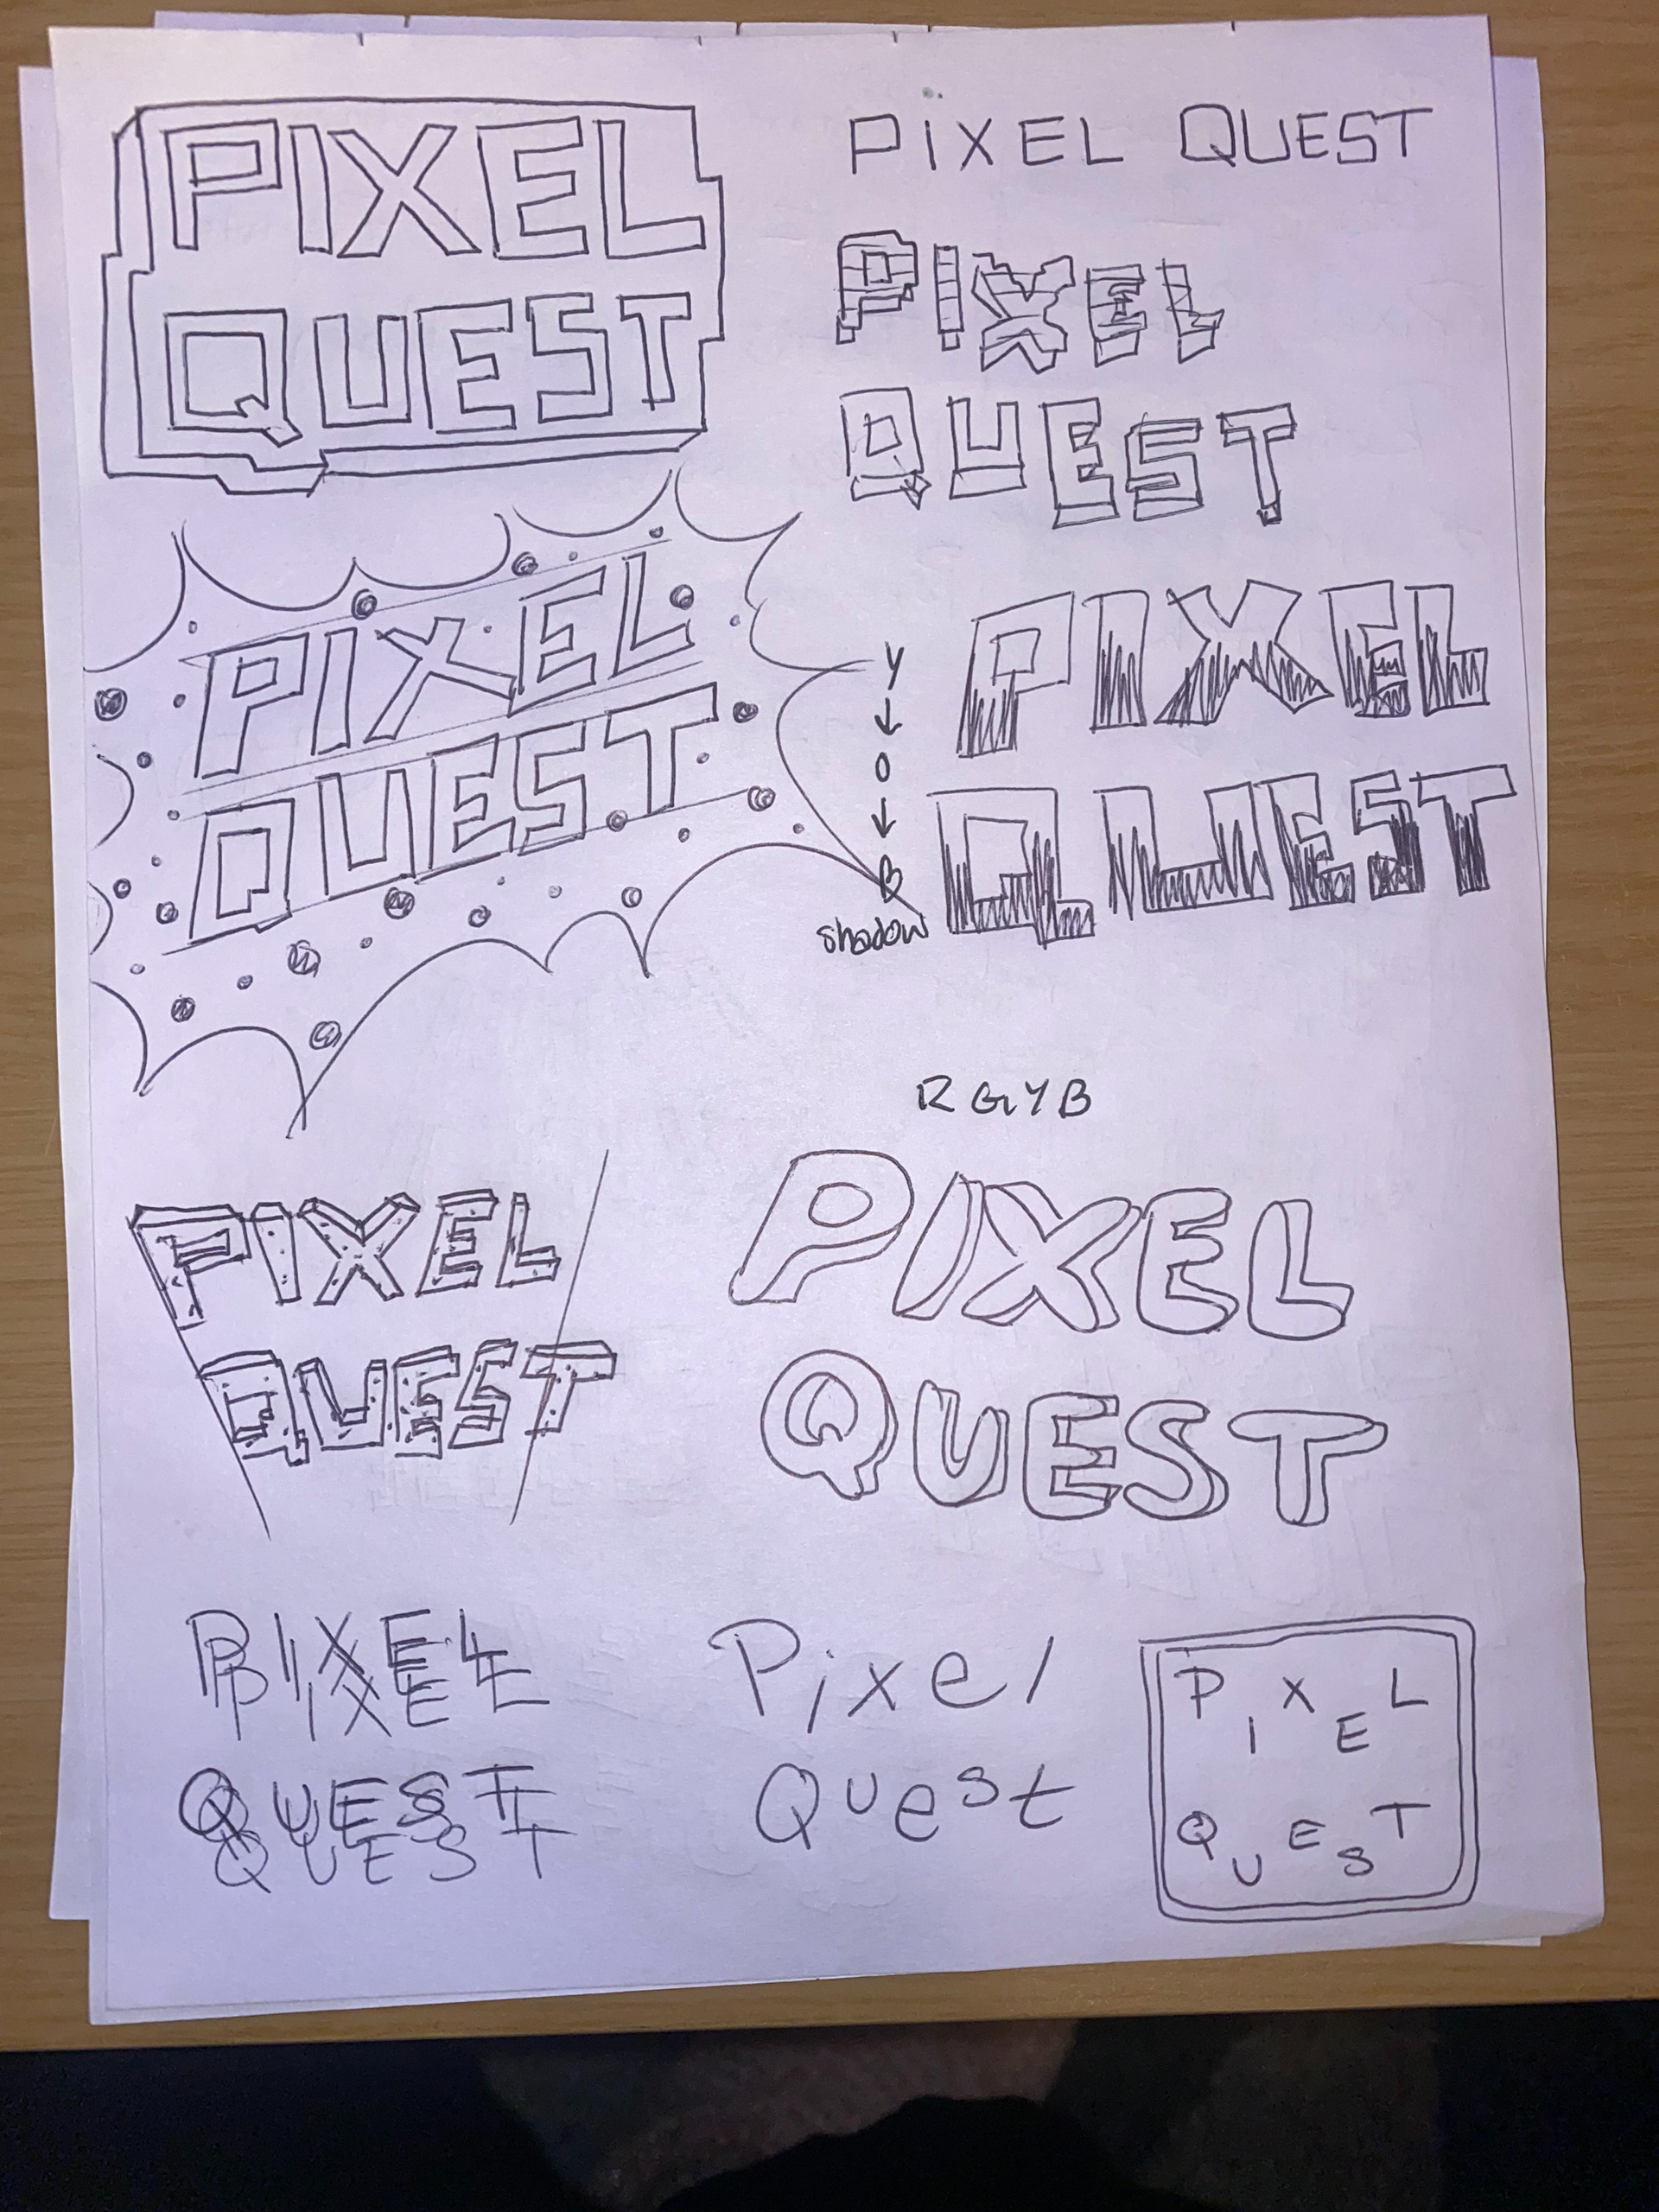 PIXEL
QUEST
PiXEL QUEST
PIXEL
QUEST
PIXEL
QUEST
Y
O
B
shadow
PIXEL
QUEST
PIXEL
QUEST
RGYB
PIXEL
QUEST
PIXEL
PIXEL
QUEST
QUEST
Pixel
Quest
PIXEL
QUEST